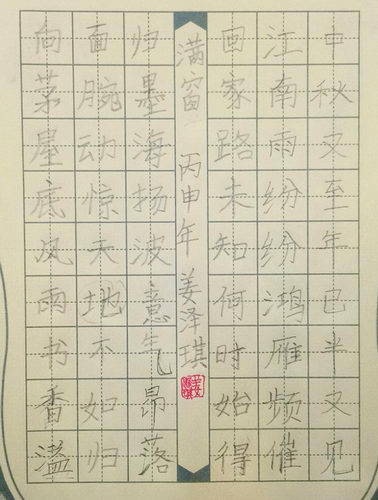 中秋又至年已半又见
江南雨纷纷鸿雁频催
回家路未知何时始得
归墨海扬波意气昂落
面腕动惊天地不如归
向茅屋底风雨书香溢
满窗 丙申年 姜泽琪